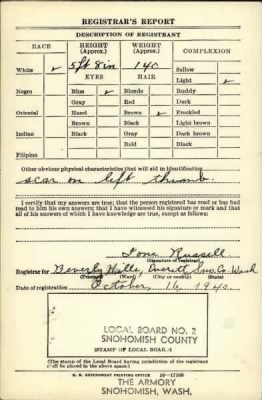 REGISTRAR'S REPORT
DESCRIPTION OF REGISTRANT
RACE HEIGHT (Approx.) WEIGHT (Approx.) COMPLEXION
White ✓ 5ft 8in 140 Sallow
EYES HAIR Light ✓
Negro Blue ✓ Blonde Ruddy
Gray Red Dark
Oriental Hazel Brown ✓ Freckled
Brown Black Light brown
Indian Black Gray Dark brown
Bald Black
Filipino
Other obvious physical characteristics that will aid in identification
scar on left thumb.
I certify that my answers are true; that the person registered has read or has had
read to him his own answers; that I have witnessed his signature or mark and that
all of his answers of which I have knowledge are true, except as follows:
Russell
(Signature of registrar)
Registrar for Beverly Halls, Everett Sno. Co. Wash
(Precinct) (Ward) (City or county) (State)
Date of registration October 16, 1940.
LOCAL BOARD NO. 2
SNOHOMISH COUNTY
(STAMP OF LOCAL BOARD)
(The stamp of the Local Board having jurisdiction of the registrant
shall be placed in the above space.)
U. S. GOVERNMENT PRINTING OFFICE 16—17105
THE ARMORY
SNOHOMISH, WASH.